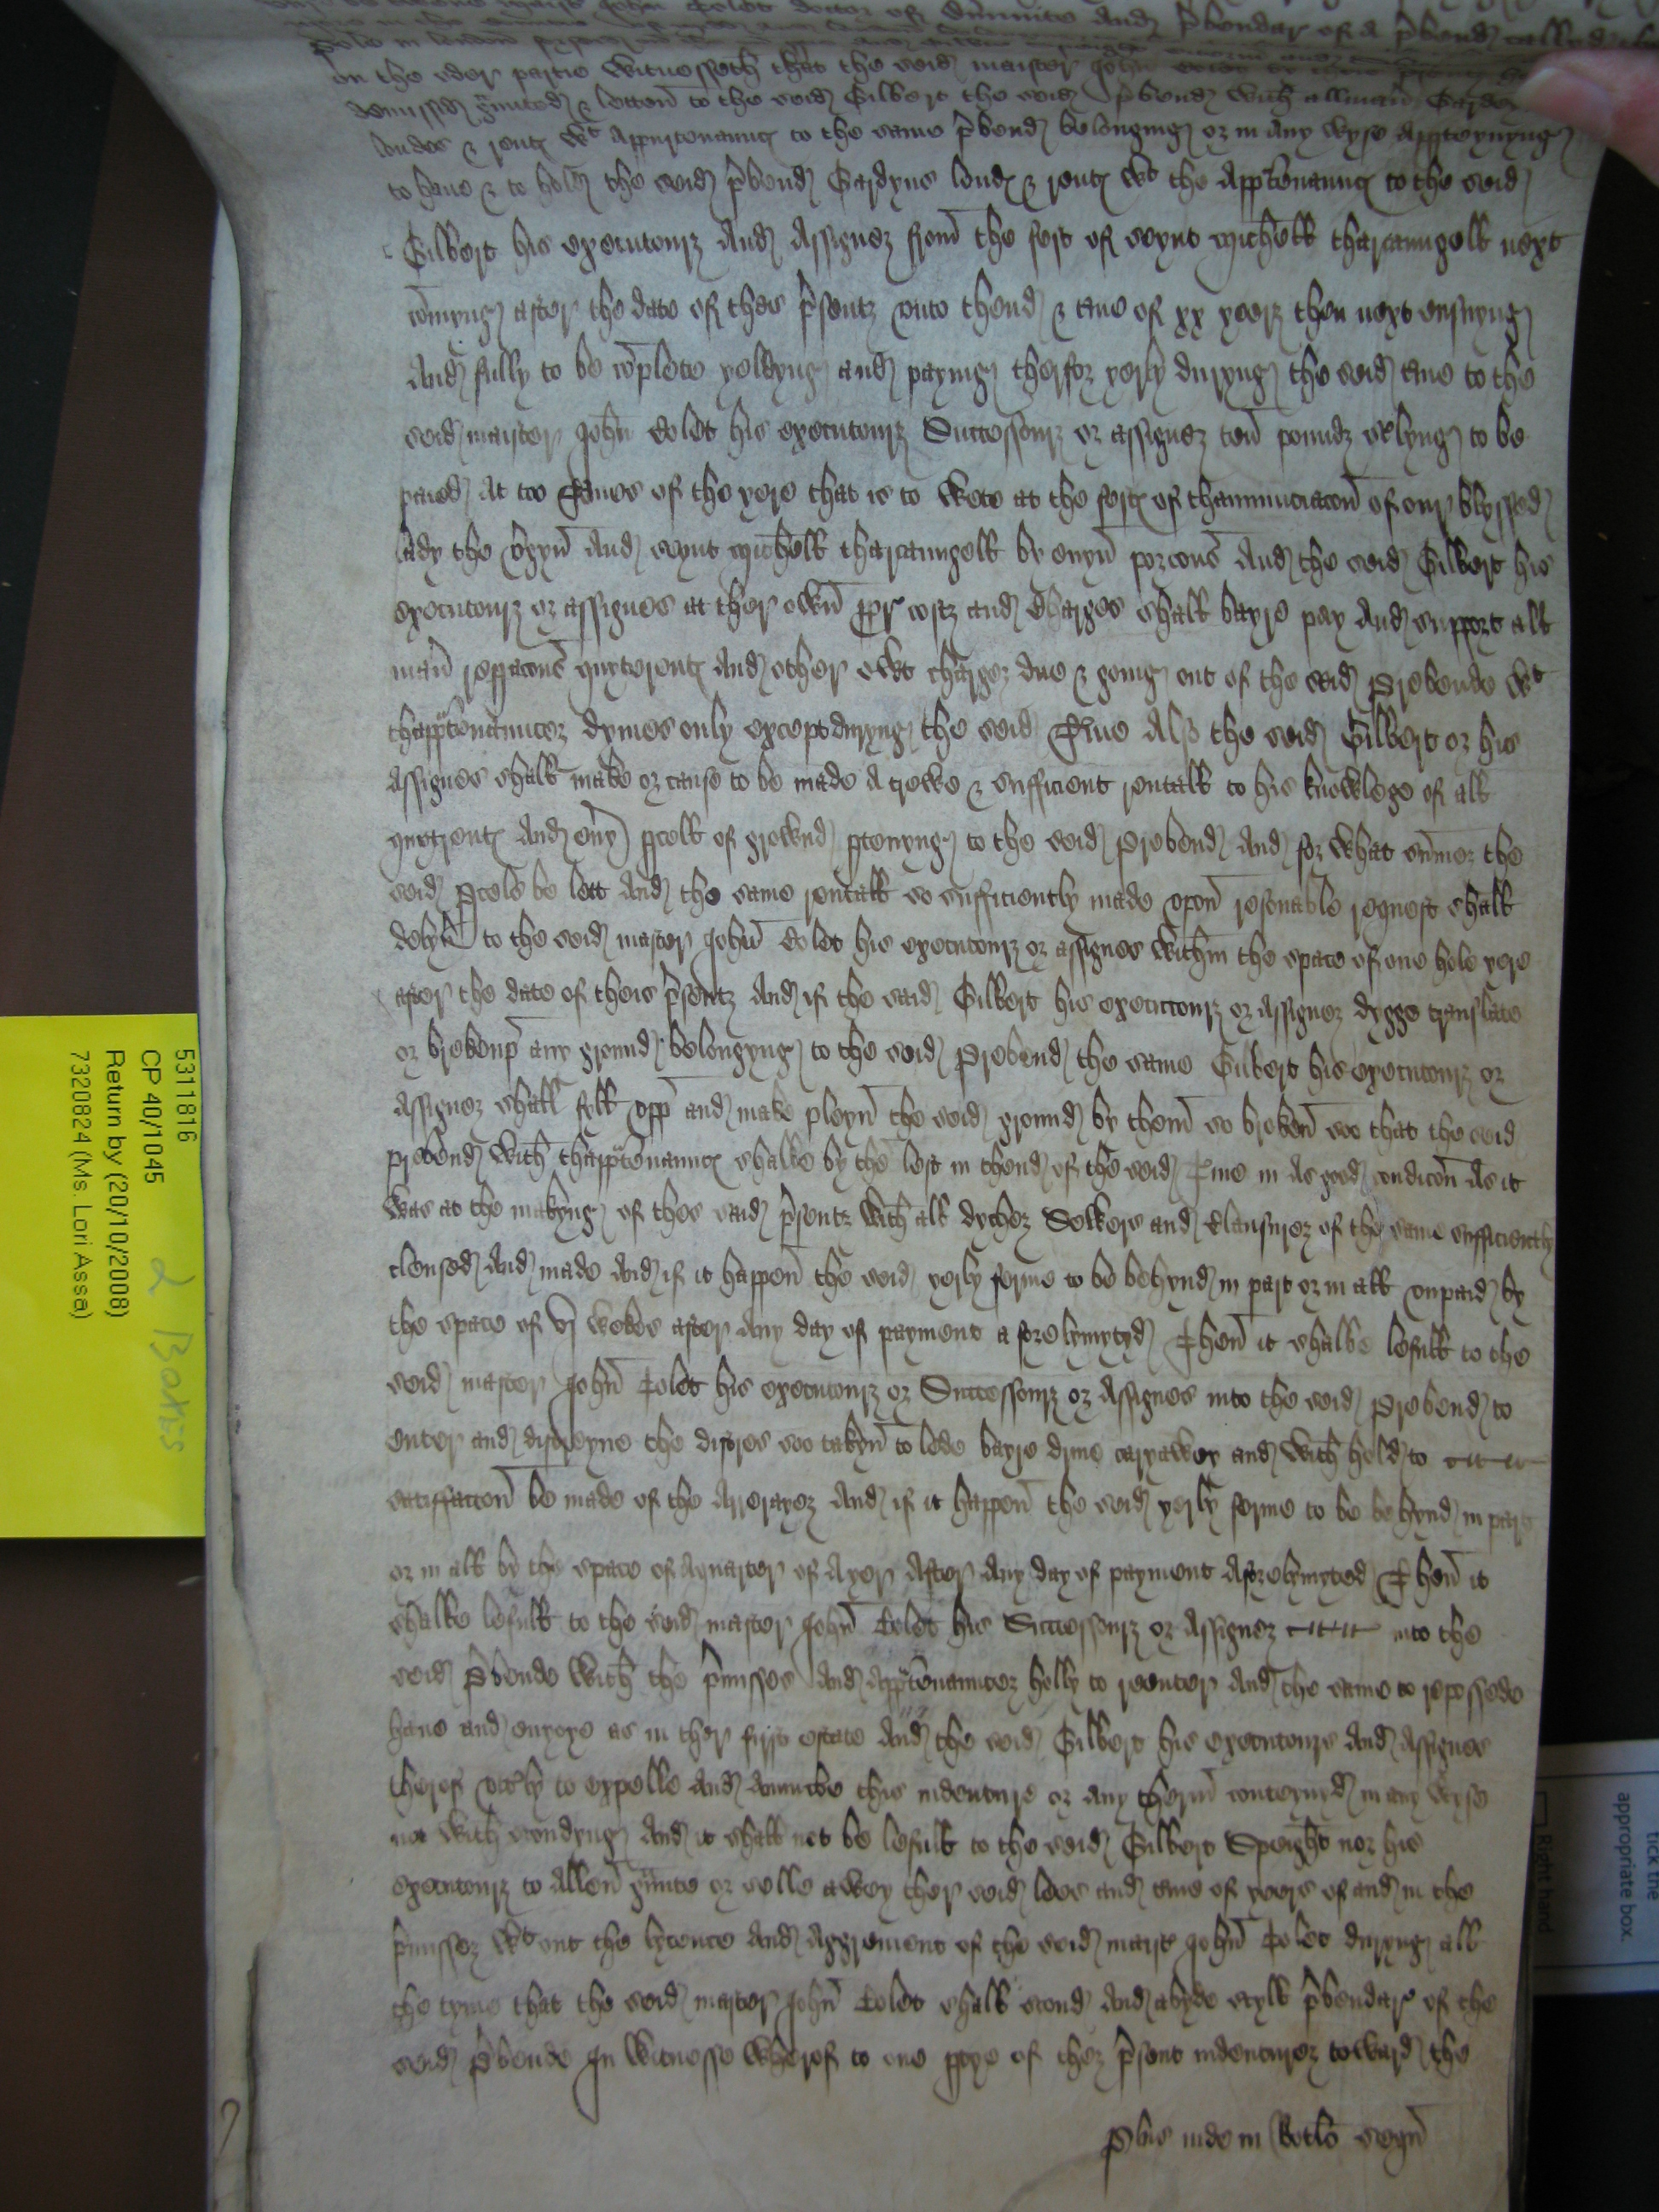 maist John Colet doctor of dininite And p̄bendar of a p̄bend called
in london
on the oder partie Witnesseth that the seid maister John
demissed g̃unted & letten to the seid Gilbert the seid p̄bend With allman̄ Garden
londes & rent℮ Wt Appurtenaunc℮ to the same p̄bend belonging or in Any Wyse Apperteynyng
to haue & to hold the seid p̄bend Gardyns lond℮ & rent℮ Wt the App̄tenaunc℮ to the seid
Gilbert his executourz And Assignez from̄ the fest of seynt Michell tharcaungell next
com̄yng after the date of thes p̄sentz vnto thend & t̄me of xx yeerz then next ensuyng
And fully to be cōplete yeldyng and paying therfor yerly duryng the seid t̄me to the
seid maister John̄ Colet his executourz Successourz or assignez ten̄ poundz st̄lyng to be
paied At too T̄mes of the yere that is to Wete at the fest℮ of thannunciacōn of our blyssed
lady the v̄gyn̄ And seynt Michell tharcaungell by euyn̄ porcons And the seid Gilbert his
executourz or assignes at ther own̄ ꝓpr costz and Charges shall bayre pay And support all
man̄ rep̄acōns quyterent℮ And other owt chargez due & going out of the seid Prebende Wt
thapp̄tenauncez dymes only except duryng the seid T̄me Also the seid Gilbert or his
Assignes shall make or cause to be made A trewe & sufficient rentall to his knowlege of all
quytrent℮ And eūy p̄cell of grownd p̄tenyng to the seid Prebend And for What sūmez the
seid P̄cels be lett And the same rentall so sufficiently made vpon̄ resonable request shall
delyū to the seid master John̄ Colet his executourz or assignes Within the space of one hole yere
after the date of theis p̄sentz And if the said Gilbert his executourz or Assignez dygge translate
or brekeup any ground belongyng to the seid Prebend the same Gilbert his executourz or
Assignez shall fyll vpp and make pleyn̄ the seid ground by them̄ so broken̄ soo that the seid
prebend With thapp̄tenaunc℮ shalbe by thē left in thend of the seid T̄me in As good condicōn As it
Was at the makyng of thes said p̄sentz With all dychez Solkers and Clausurez of the same sufficiently
clensed And made And if it happen̄ the seid yerly ferme to be behynd in part or in all vnpaid by
the space of vj Wekes after Any day of payment a forelymytyd Then̄ it shalbe lefull to the
seid master John̄ Colet his executourz or Successourz or Assignes into the seid Prebend to
enter and distreyne the distres soo takyn̄ to lede bayre dryue caryawey and With hold to
satisfaccōn be made of the Arrerayez And if it happen̄ the seid yerly ferme to be behynd in part
or in all by the space of Aquarter of Ayer After Any day of payment Aforelymyted Then̄ it
shalbe lefull to the seid master John̄ Colet his Successourz or Assignez into the
seid P̄bende With the p̄misses And App̄tenauncez holly to reenter And the same to repossede
haue and enyoye as in ther first estate And the seid Gilbert his executours And Assignes
therof vtt̄ly to expelle And this indenture or any therin̄ conteynyd in any Wyse
not With stondyng And it shall not be lefull to the seid Gilbert Speight nor his
executourz to Allen̄ g̃unte or selle awey ther seid lees and t̄me of yeers of and in the
p̄missez Wt out the lycence And Aggrement of the seid maist̄ John̄ Colet duryng all
the tyme that the seid master John̄ Colet shall stond And abyde styll p̄bendare of the
seid P̄bende In Witnesse Wherof to one p̄tye of thez p̄sent indenturez toward the
Pl̄us inde in Rotlo segn̄
5311816
CP 40/1045
Return by (20/10/2008)
7320824 (Ms. Lori Assa)
2 Boxes
tick the
appropriate box.
Right hand